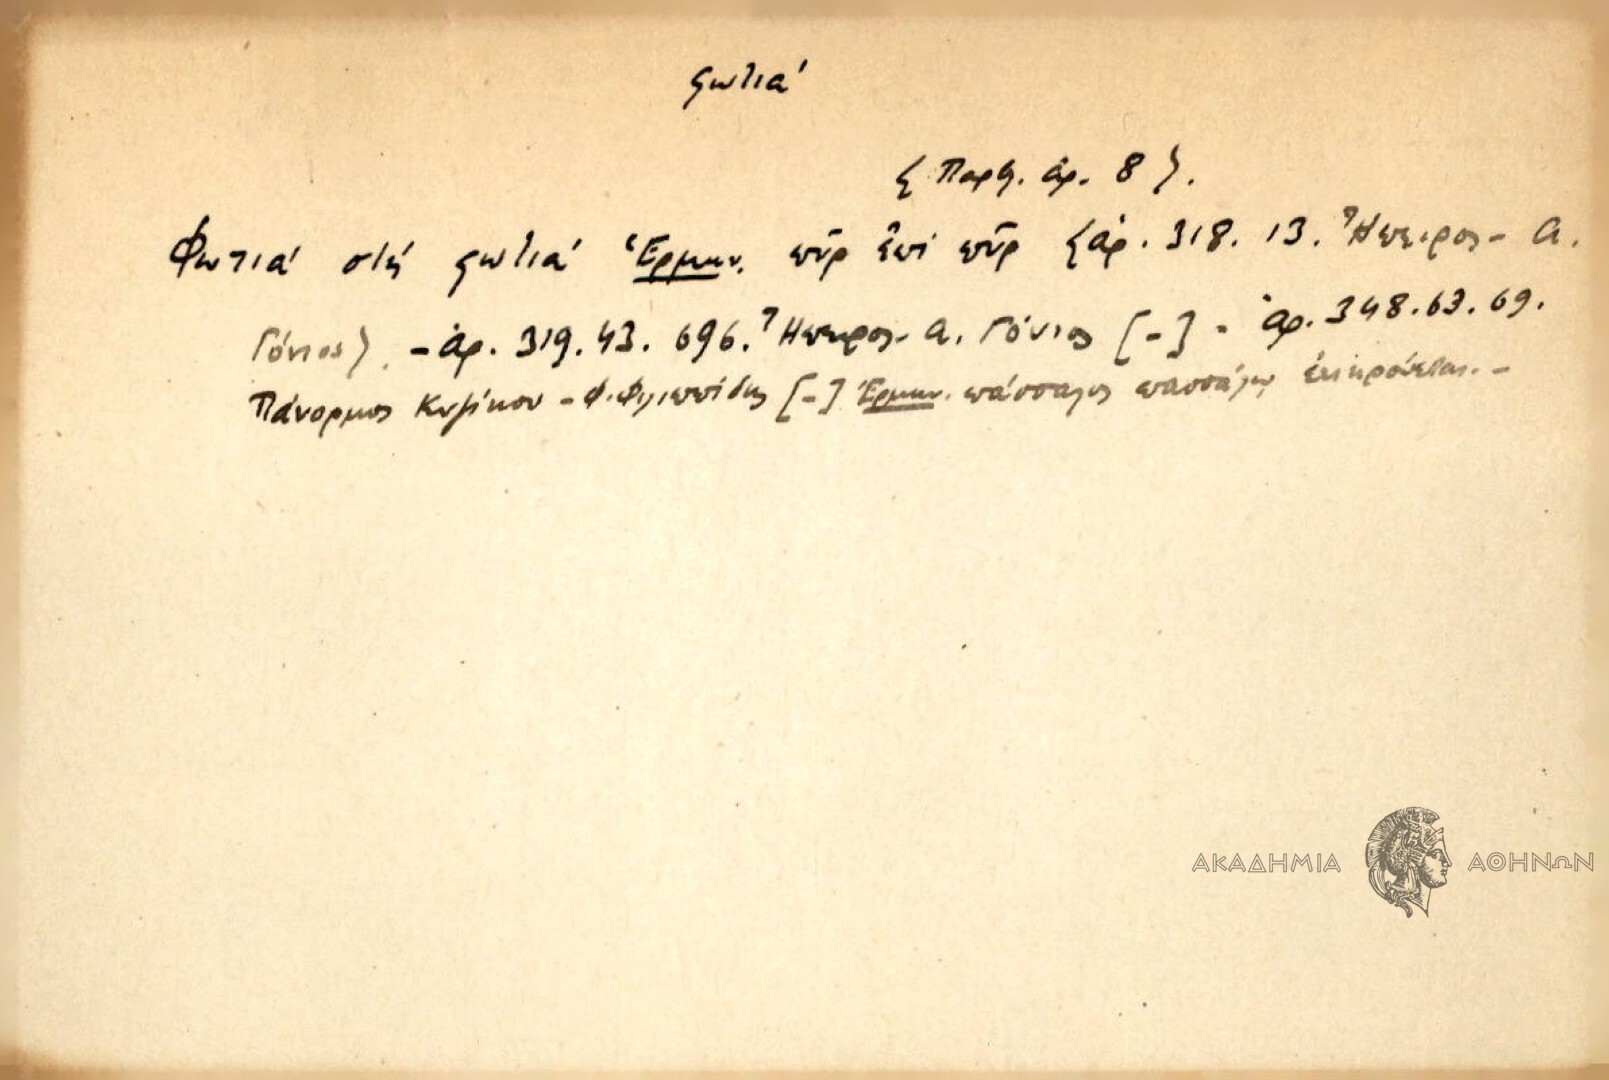 φωτιά
{Παρλ. ἀρ. 8}.
Φωτιά στή φωτιά Ἑρμην. πῦρ ἐπί πῦρ {ἀρ. 318. 13. Ἤπειρος - Α.
Γόνιος}. - ἀρ. 319. 43. 696. Ἤπειρος - Α. Γόνιος [-] - ἀρ. 348. 63. 69.
Πάνορμος Κυζίκου - Φ. Φιλιππίδης [-] Ἑρμην. πάσσαλος πασσάλῳ ἐκκρούεται. -
ΑΚΑΔΗΜΙΑ ΑΘΗΝΩΝ